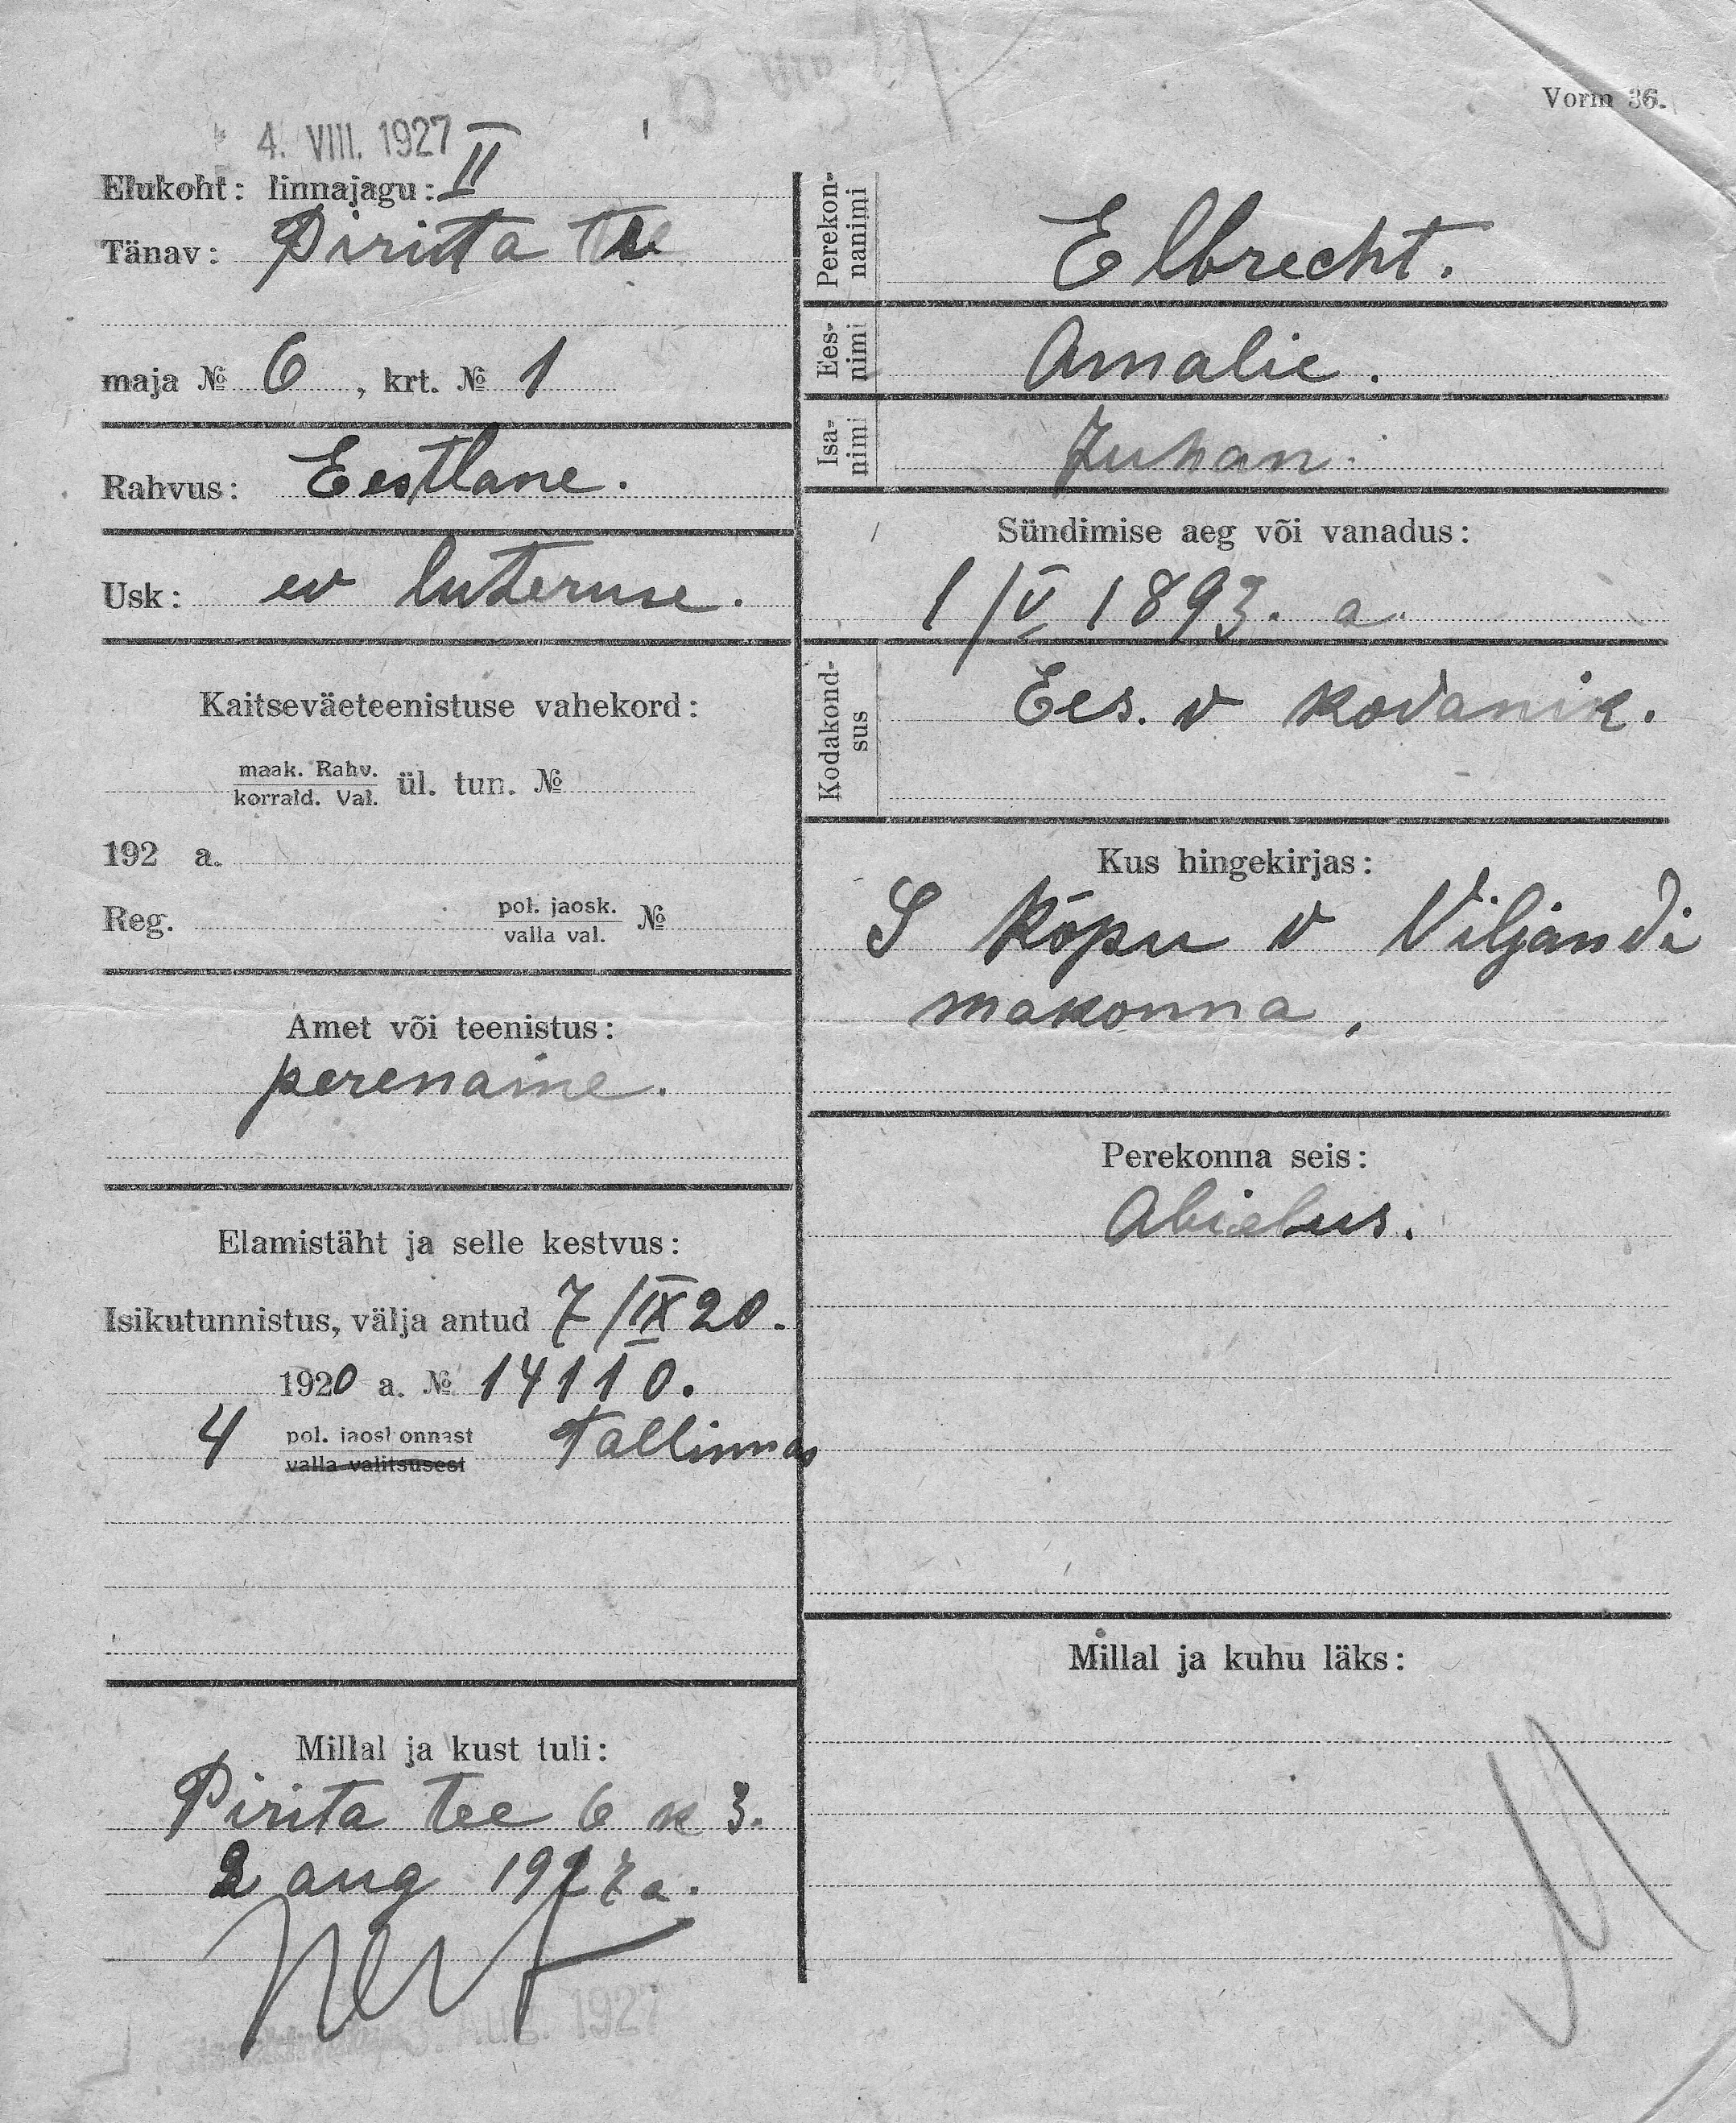 Vorm 36.
4. VIII. 1927
Elukoht: linnajagu: II
Tänav: Piritta tee
maja № 6, krt. № 1
Rahvus: Eestlane.
Usk: ev luteruse.
Kaitseväeteenistuse vahekord:
maak. Rahv.
korrald. Val. ül. tun. №
192 a.
Reg. pol. jaosk. №
valla val.
Amet või teenistus:
perenaine.
Elamistäht ja selle kestvus:
Isikutunnistus, välja antud 7/IX 20.
1920 a. № 14110.
4 pol. jaoskonnast Tallinnas
valla valitsusest
Millal ja kust tuli:
Pirita tee 6 k 3.
2 aug 1927 a.
Aug. 1927
Perekonnanimi
Elbrecht.
Ees-
nimi
Amalie.
Isa-
nimi
Juhan.
Sündimise aeg või vanadus:
1/V 1893. a.
Kodakond-
sus
Ees. v kodanik.
Kus hingekirjas:
S Kõpu v Viljandi
makonna.
Perekonna seis:
Abielus.
Millal ja kuhu läks: